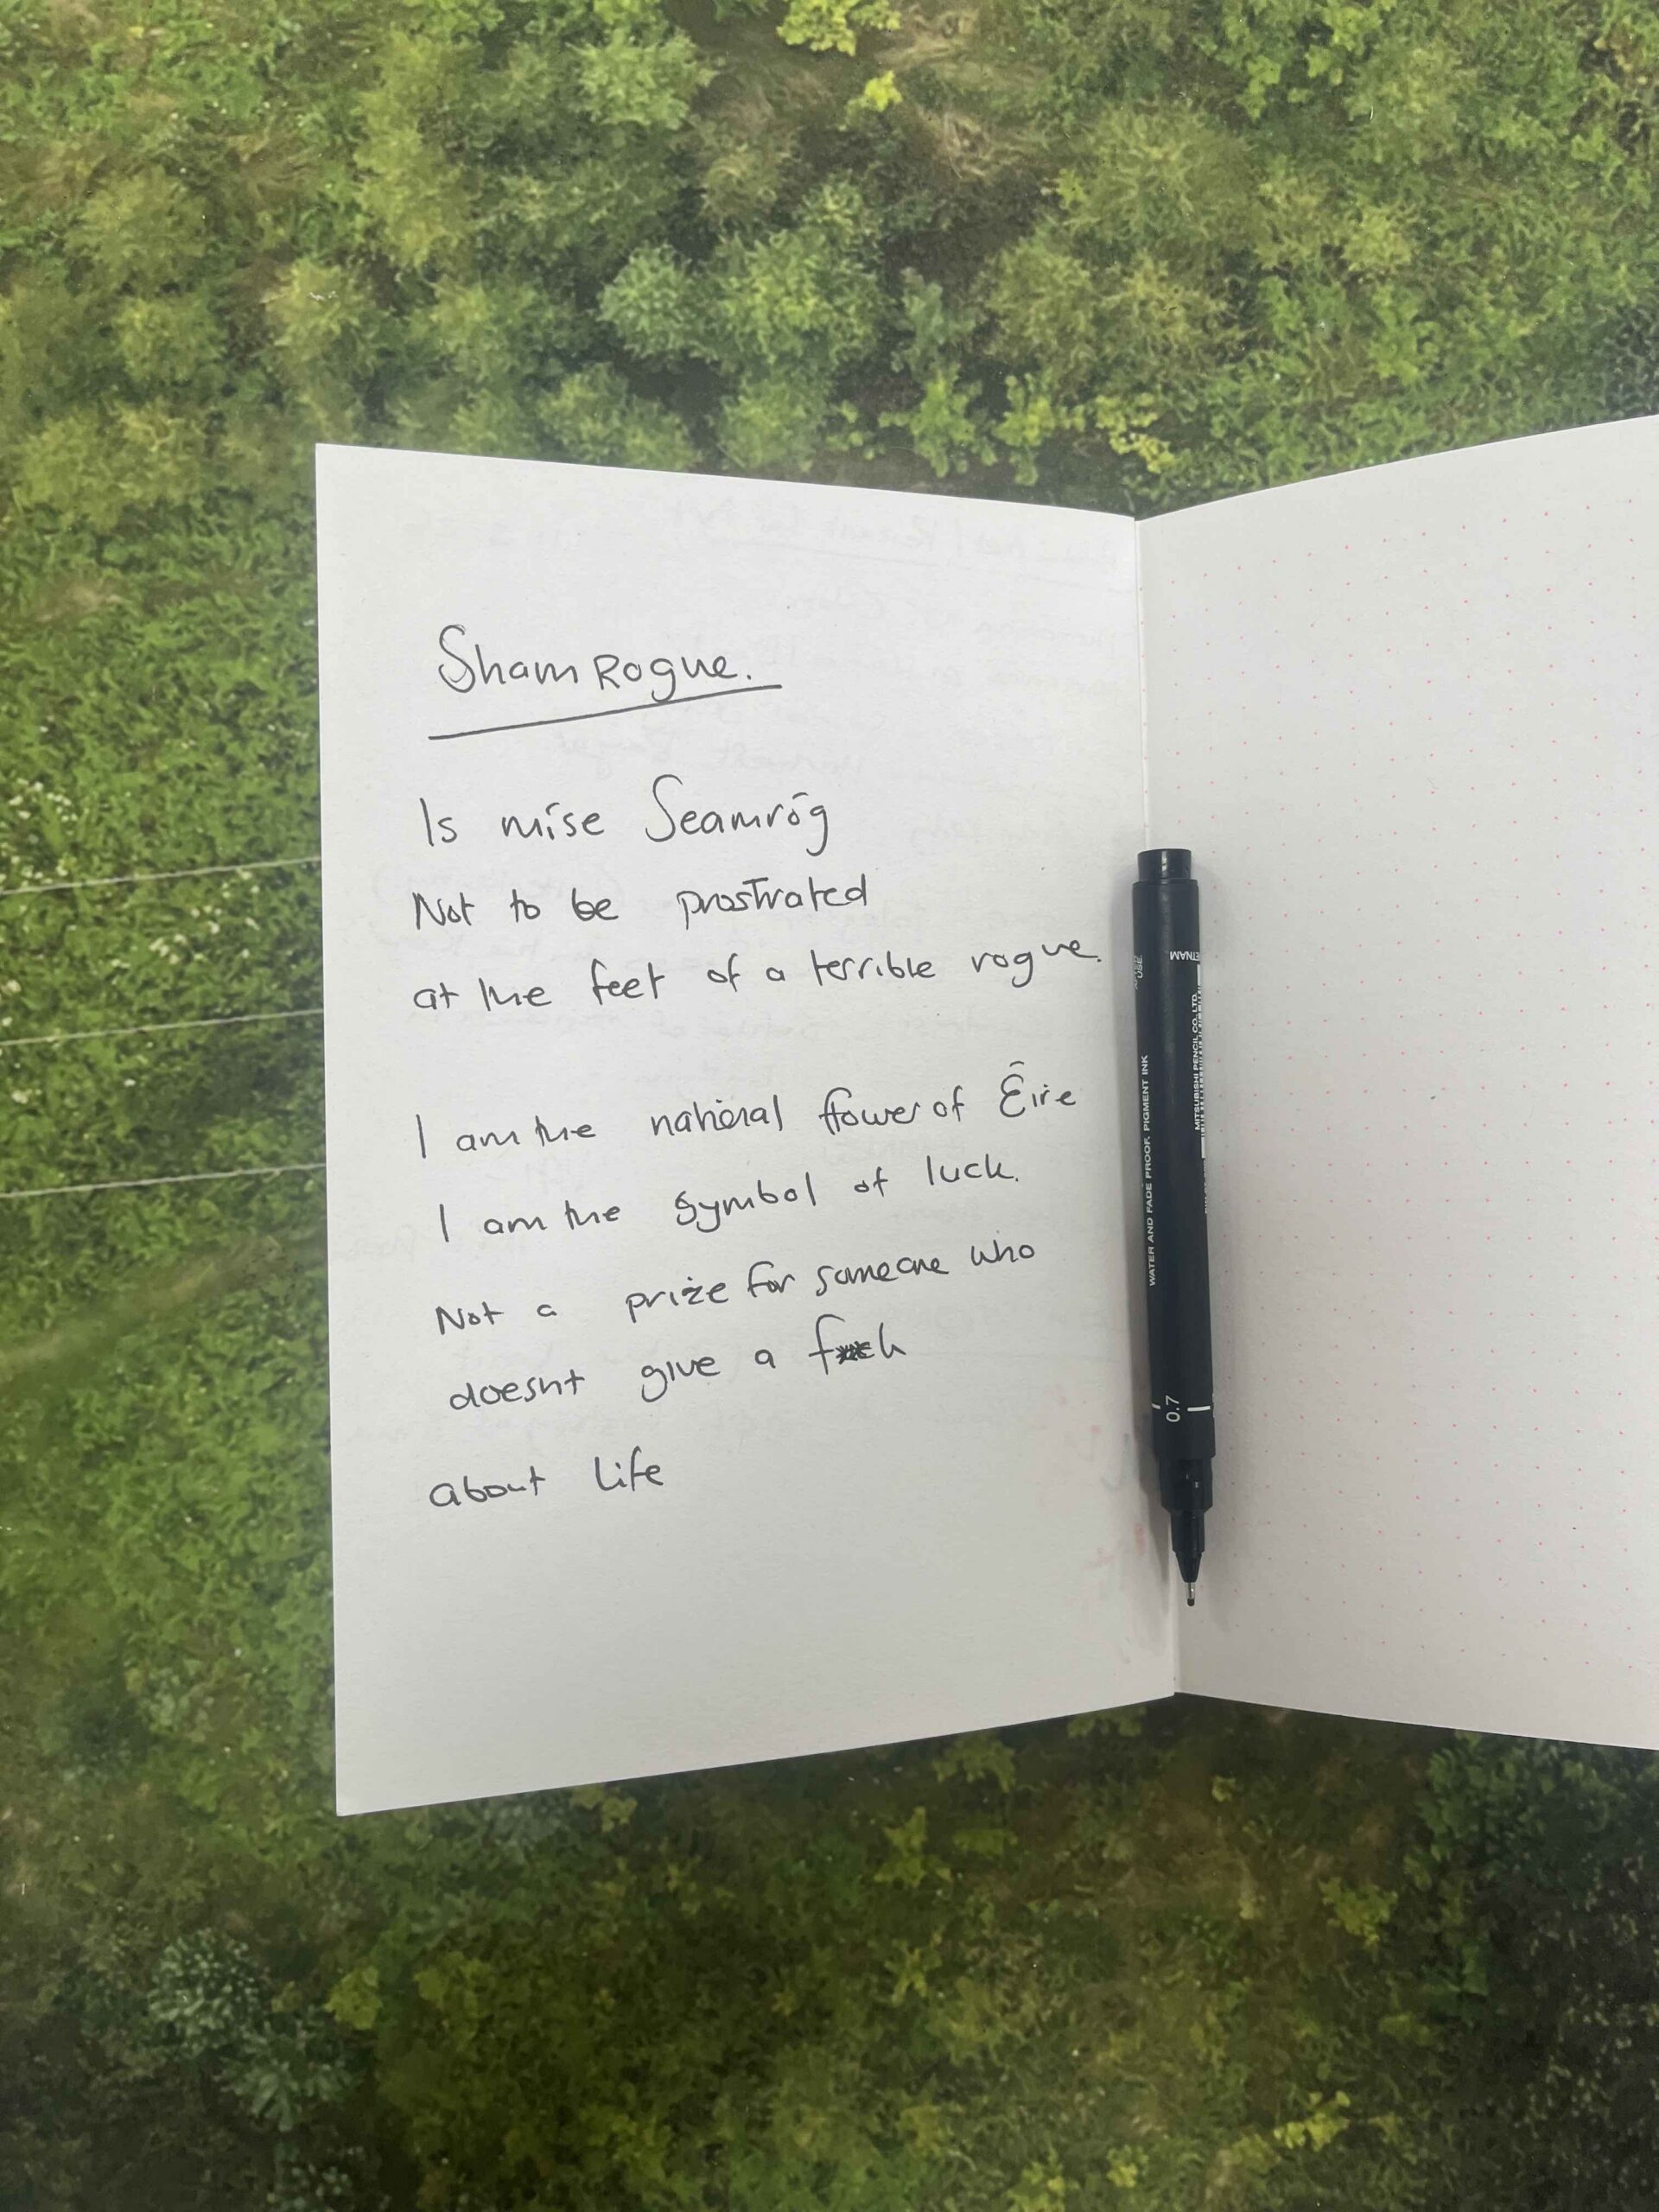 Sham Rogue.
Is mise Seamróg
Not to be prostrated
at the feet of a terrible rogue.
I am the national flower of Éire
I am the symbol of luck.
Not a prize for someone who
doesnt give a f**ck
about life
WATER AND FADE PROOF, PIGMENT INK
MITSUBISHI PENCIL CO., LTD.
ETNAM
USE
0.7